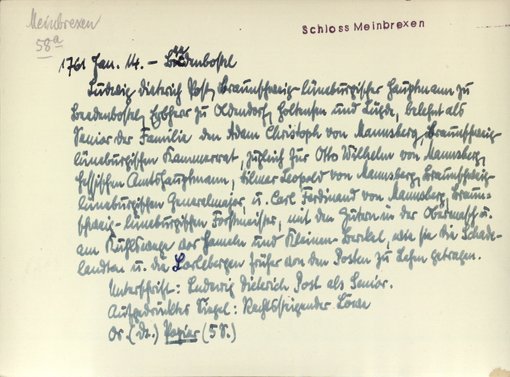 Meinbrexen
58a
Schloss Meinbrexen
1761 Jan. 14. - Bredenbostel
Ludwig Dieterich Post, Braunschweig-Lüneburgischer Hauptmann zu
Bredenbostel, Erbherr zu Oldendorf, Holtensen und Lüdge, belehnt als
Senior der Familie den Adam Christoph von Mannsberg, Braunschweig-
lüneburgischen Kammerrat, zugleich für Otto Wilhelm von Mannsberg,
hessischen Amtshauptmann, Hilmer Leopold von Mannsberg, Braunschweig-
lüneburgischen Generalmajor, u. Carl Ferdinand von Mannsberg, Braun-
schweig-lüneburgischen Forstmeister, mit den Gütern in der u.
am vor Hameln und Kleinen Berkel, wie sie die
u. die früher von den Posten zu Lehen getragen.
Unterschrift: Ludewig Dieterich Post als Senior.
Aufgedrücktes Siegel: Rechtssteigender Löwe
Or. (dt.) Papier (5 S.)